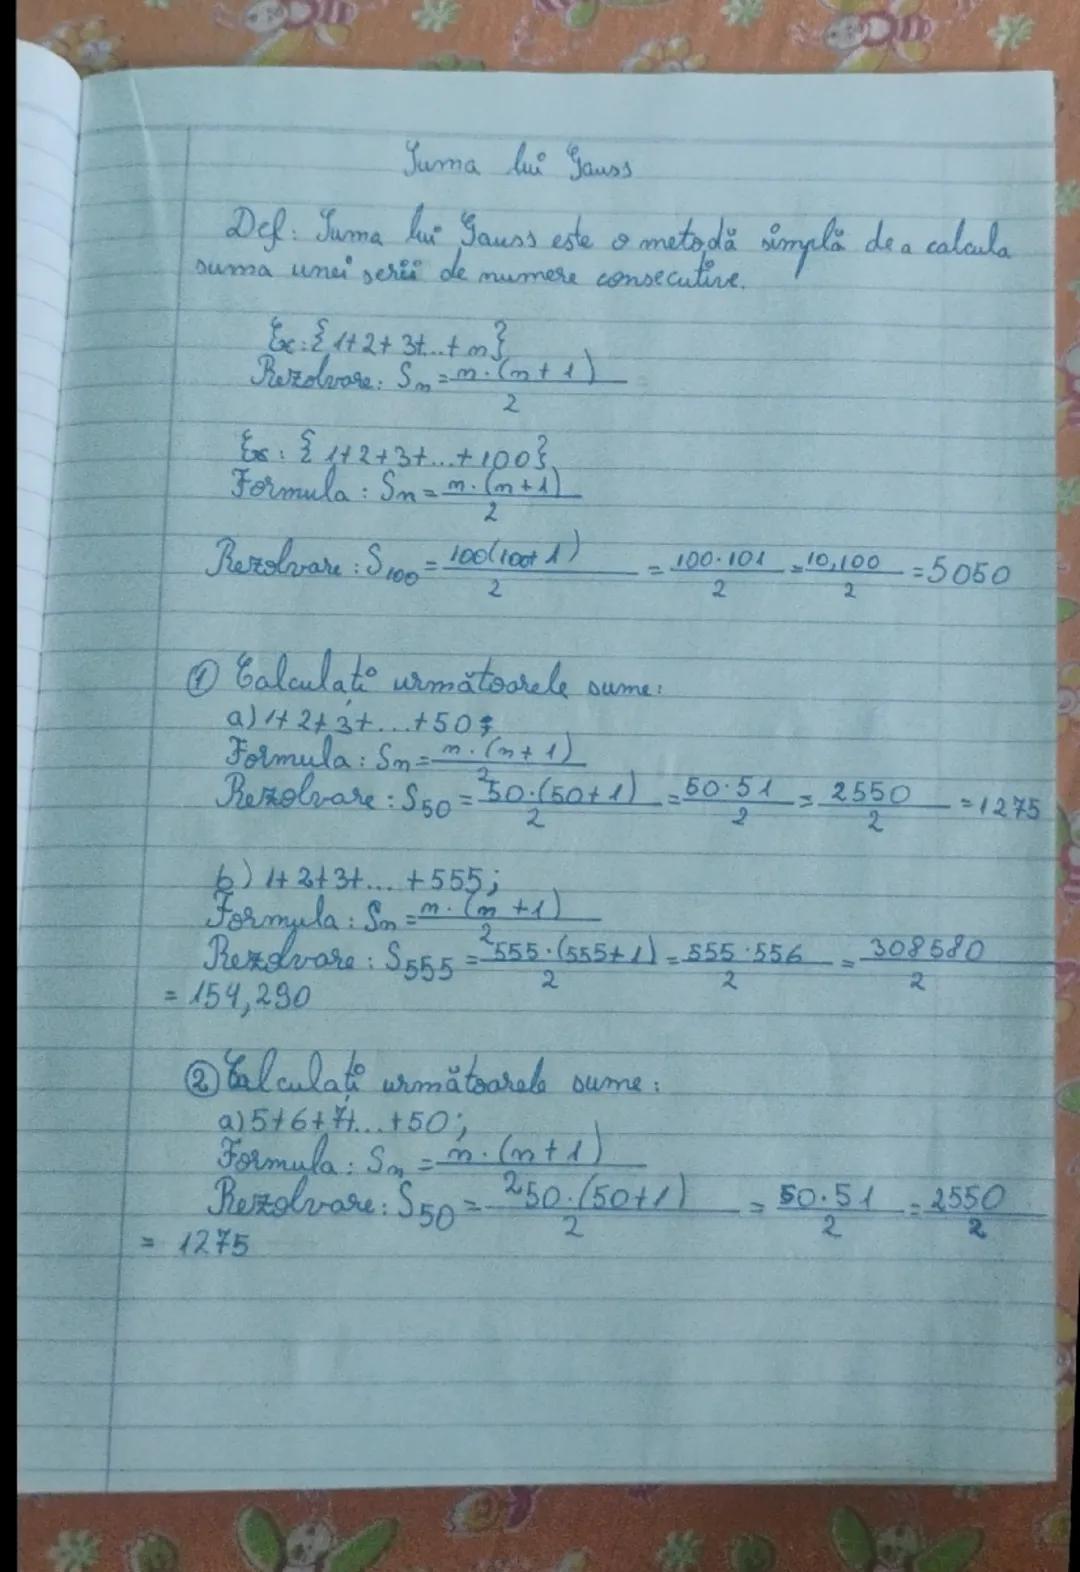 Suma lui Gauss
Def: Suma lui Gauss este o metodă simplă de a calcula
suma unei serii de numere consecutive.
Ex: {1+2+3+...+n}
Rezolvare: Sn = n·(n+1)
2
Ex: {1+2+3+...+100}
Formula: Sn = n·(n+1)
2
Rezolvare: S100 = 100(100+1) = 100·101 = 10,100 = 5050
2 2 2
① Calculați următoarele sume:
a) 1+2+3+...+50;
Formula: Sn = n·(n+1)
2
Rezolvare: S50 = 50·(50+1) = 50·51 = 2550 = 1275
2 2 2
b) 1+2+3+...+555;
Formula: Sn = n·(n+1)
2
Rezolvare: S555 = 555·(555+1) = 555·556 = 308580
2 2 2
= 154,290
② Calculați următoarele sume:
a) 5+6+7+...+50;
Formula: Sn = n·(n+1)
2
Rezolvare: S50 = 50·(50+1) = 50·51 = 2550
2 2 2
= 1275